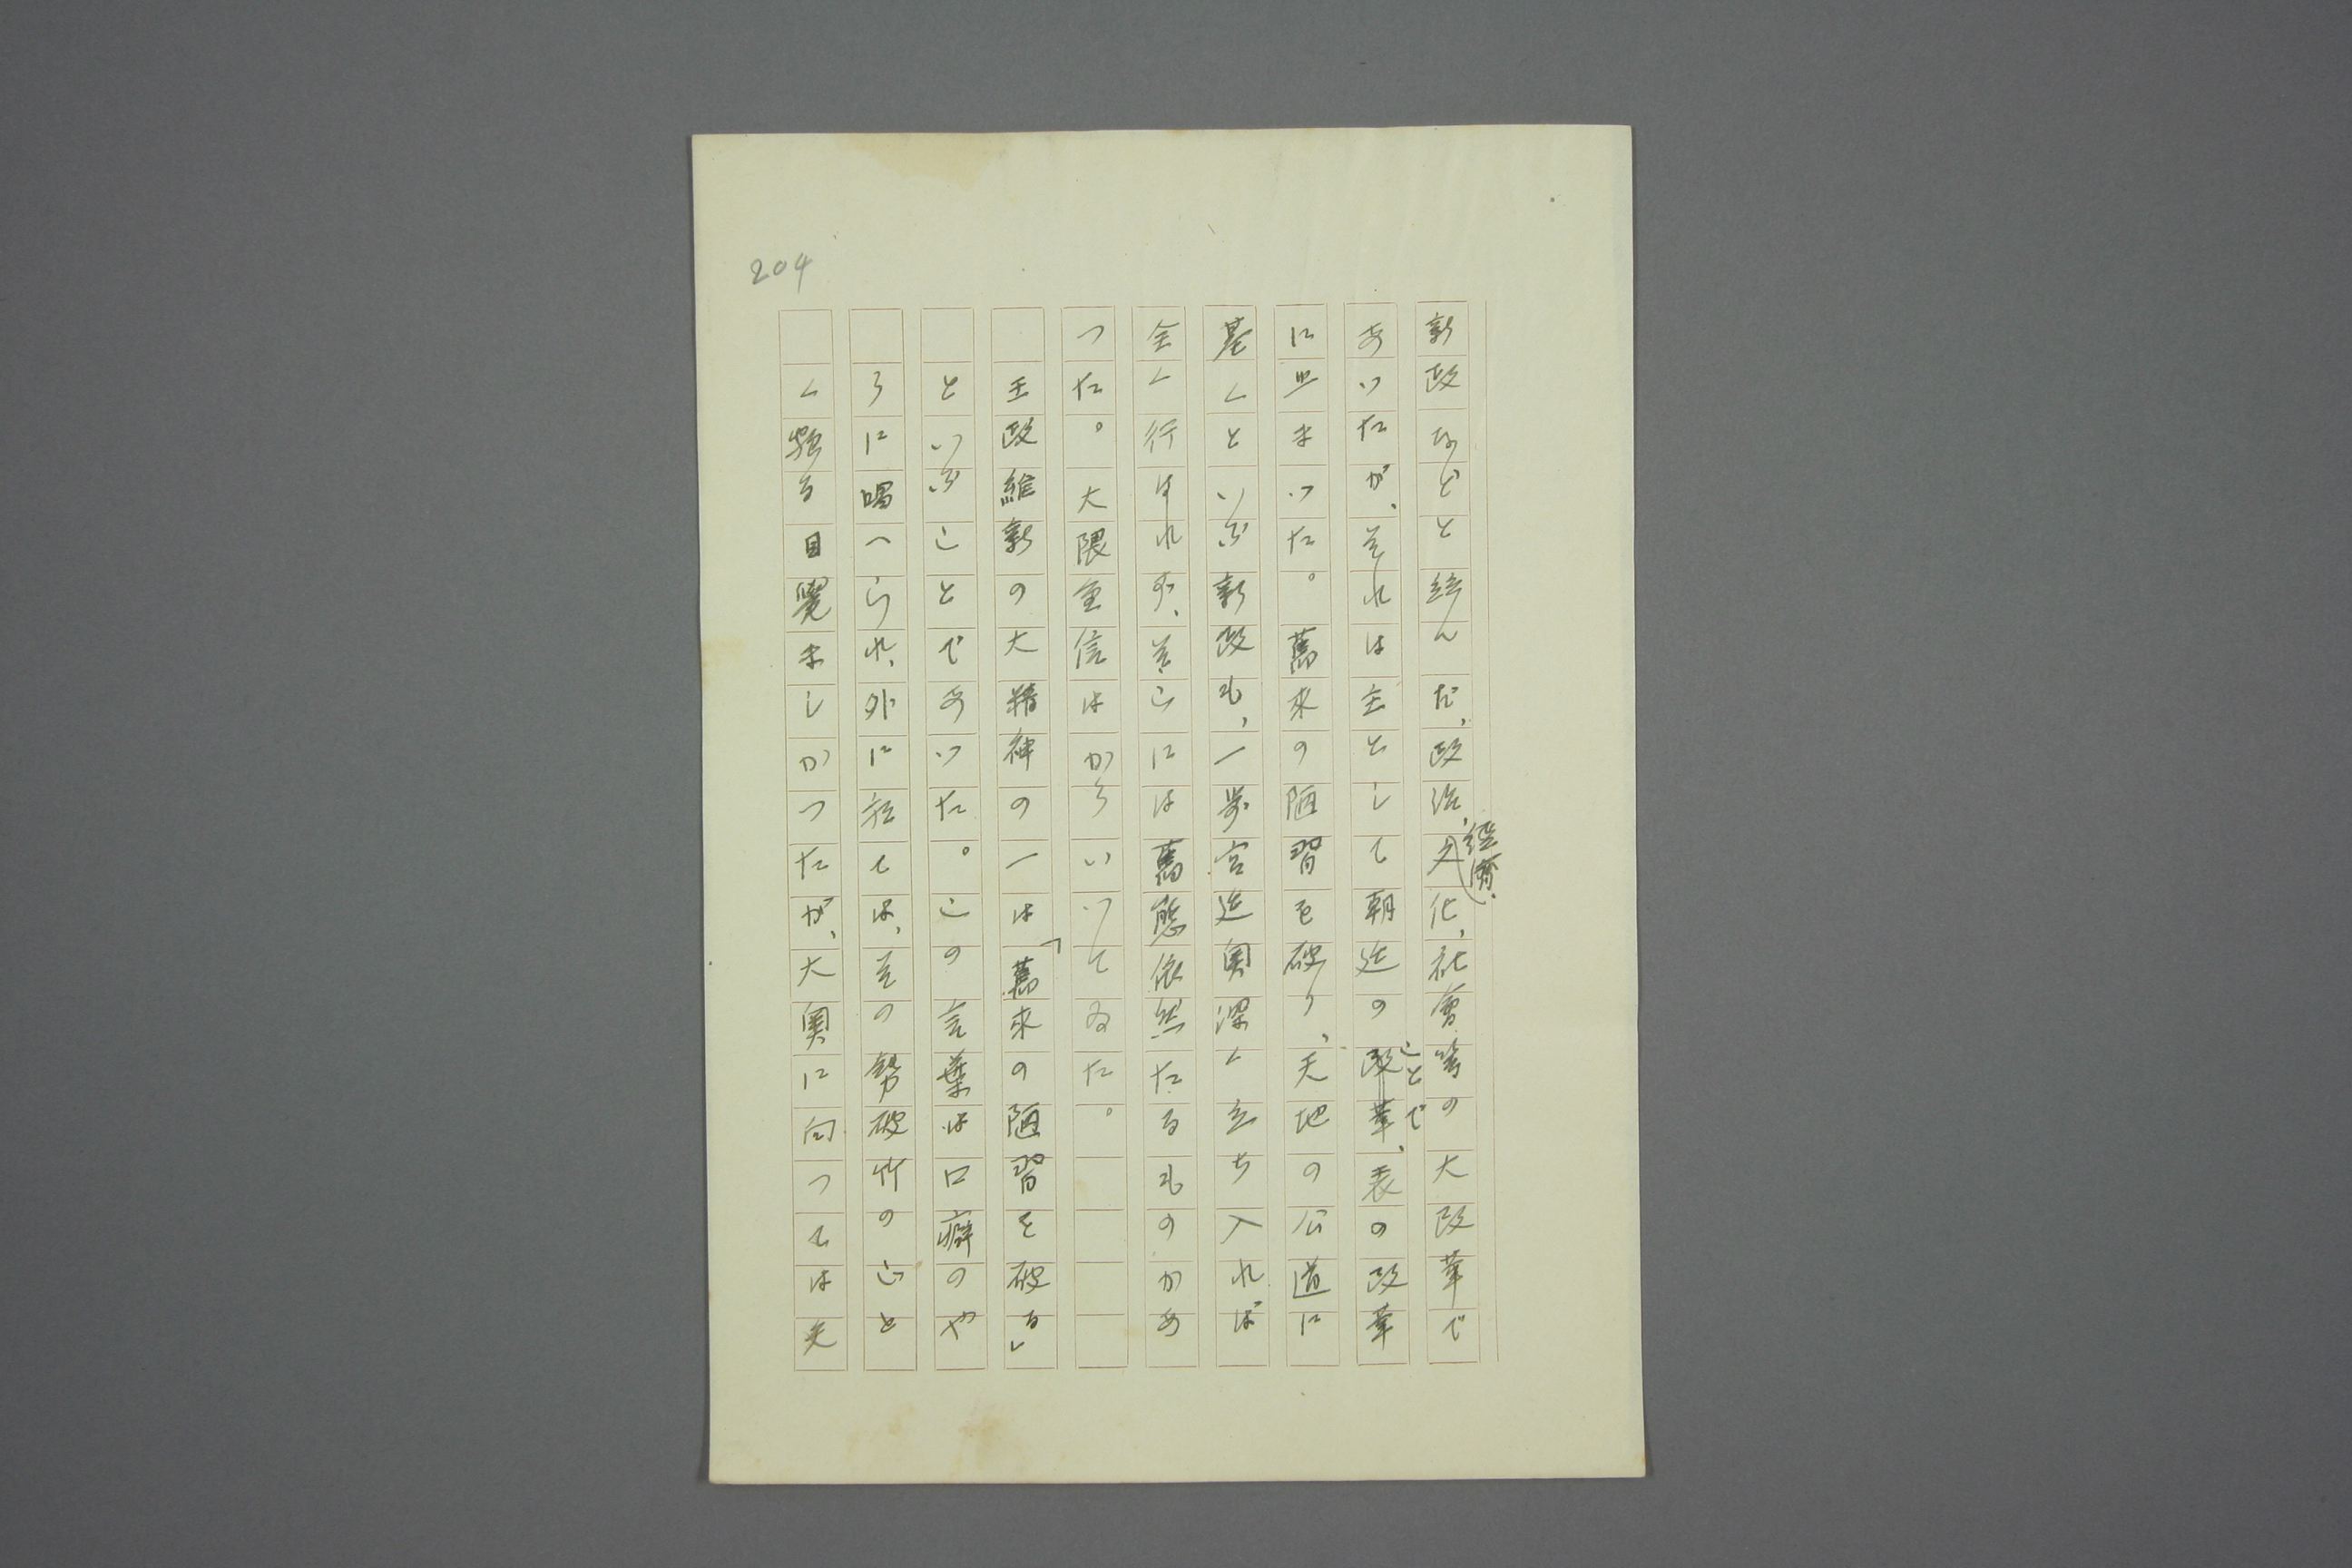 204
新政などと結んだ、政治、経濟、文化、社會等の大改革で
あつたが、それは主として朝廷のことで、表の改革
に止まつた。舊來の陋習を破り、天地の公道に
基くといふ新政も、一歩宮廷奥深く立ち入れば
全く行はれず、そこには舊態依然たるものがあ
つた。大隈重信はかういつてゐた。
王政維新の大精神の一は「舊來の陋習を破る」
といふことであつた。この言葉は口癖のや
うに唱へられ、外に在ては、その勢破竹のごと
く頗る目覺ましかつたが、大奥に向つては矢